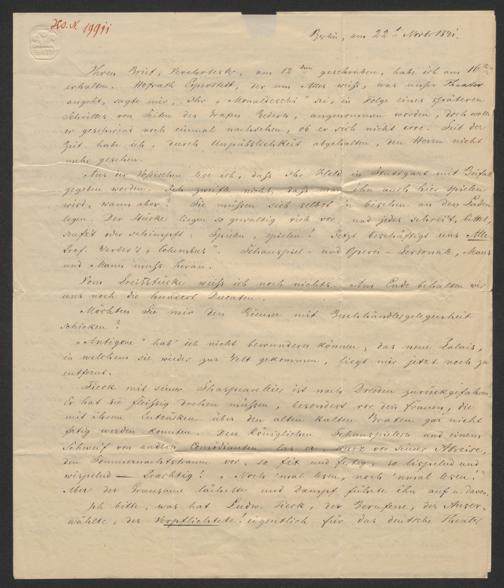 Hs. N 1991i
Berlin, am 22t Novbr 1841.
Ihren Brief, Verehrtester, am 12ten geschrieben, habe ich am 16ten
erhalten. Hofrath Esperstedt, der um Alles weiß, was unser Theater
angeht, sagte mir, Ihr „Monaldeschi" sei, in Folge eines späteren
Schrittes von Seiten des Grafen Redern, angenommen worden, doch wolle
er geschwind noch einmal nachsehen, ob er sich nicht irre. Seit der
Zeit habe ich, durch Unpäßlichkeit abgehalten, den Herrn nicht
mehr gesehen.
Aus der Vossischen lese ich, daß Ihr Held in Stuttgart mit Beifall
gegeben worden. Ich zweifle nicht, daß man ihn auch hier spielen
wird, wann aber? Sie müssen sich selbst
legen. Der Stücke liegen so gewaltig viel vor und jedes schreit, bettelt,
seufzt oder schimpft: Spielen, spielen! Jetzt beschäftigt uns Alle
Prof. Werder's „Columbus". Schauspiel- und Opern-Personale, Maus
und Mann muß heran.
Vom Preisstücke weiß ich noch nichts. Am Ende behalten wir
uns noch die hundert Ducaten.
Möchten Sie mir den mit Buchhändlergelegenheit
schicken?
„Antigone" hab' ich nicht bewundern können, das neue Palais,
in welchem sie wieder zur Welt gekommen, liegt mir jetzt noch zu
entfernt.
Tieck mit seiner ist nach Dresden zurückgefahren.
Er hat fleißig müssen, besonders vor den Frauen, die
mit ihrem Entzücken über den alten kalten Braten gar nicht
fertig werden konnten. Den Königlichen Schauspielern und einem
Schweif von andern Comödianten las er kurz vor seiner Abreise,
den Sommernachtstraum vor, so fix und fertig, so lispelnd und
wispernd — Prächtig! „Noch 'nmal lesen, noch 'nmal lesen!"
Aber der Grausame lächelte und Dampf führte ihn auf u. davon.
Ich bitte, was hat Ludw. Tieck, der Berufene, der Auser-
wählte, der Verpflichtete! eigentlich für das deutsche Theater